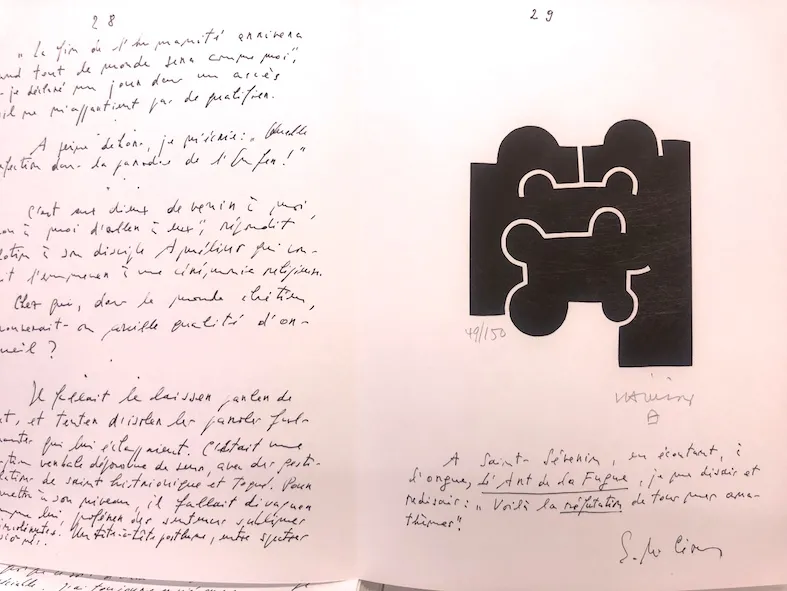 28
„La fin de l'humanité arrivera
and tout le monde sera comme moi",
-je déclaré un jour dans un accès
il ne m'appartient pas de qualifier.
A peine dehors, je m'écrie: „Quelle
fection dans la parodie de l'Enfer!"
C'est aux dieux de venir à moi,
on à moi d'aller à eux", répondit
lotin à son disciple Amélius qui vou-
t l'emmener à une cérémonie religieuse.
Chez qui, dans le monde chrétien,
rouverait-on pareille qualité d'or-
ueil?
Il fallait le laisser parler de
t, et tenter d'isoler les paroles ful-
rantes qui lui échappaient. C'était une
ption verbale dépourvue de sens, avec des gesti-
lations de saint histrionique et toqué. Pour
mettre à son niveau, il fallait divaguer
mme lui, proférer des sentences sublimes
incohérentes. Un tête-à-tête posthume, entre spectres
29
49/150
A Saint-Séverin, en écoutant, à
l'orgue, L'Art de la Fugue, je me disais et
redisais: „Voilà la réfutation de tous mes ana-
thèmes".